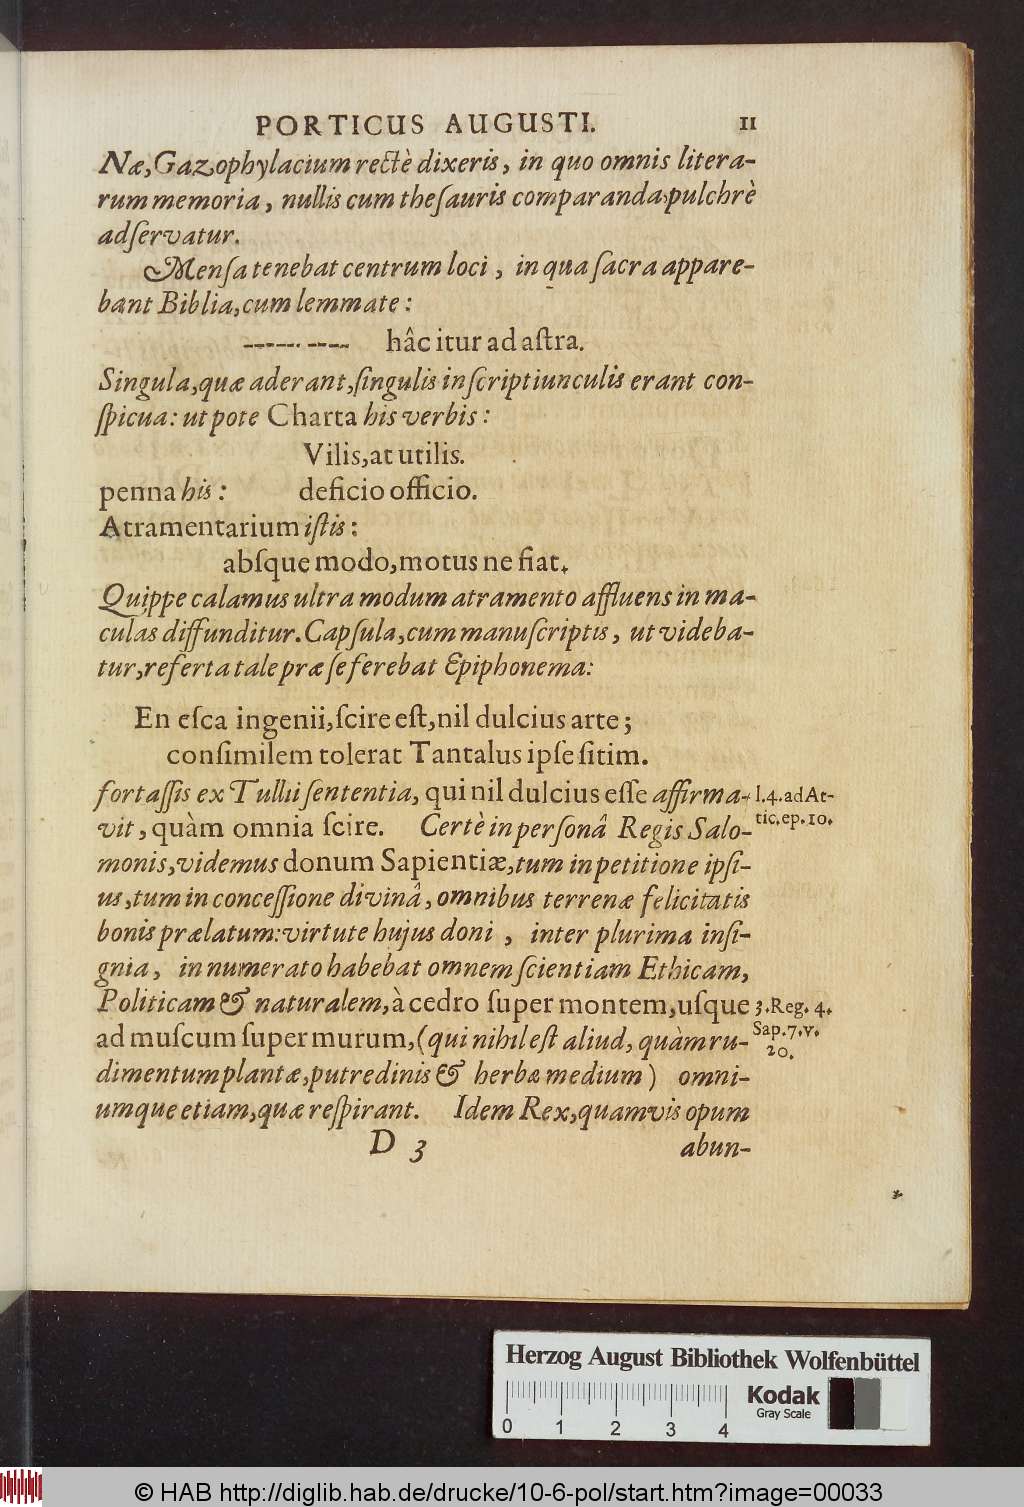 PORTICUS AUGUSTI. 11
Næ, Gazophylacium rectè dixeris, in quo omnis litera-
rum memoria, nullis cum theſauris comparanda, pulchrè
adſervatur.
Menſa tenebat centrum loci, in qua ſacra appare-
bant Biblia, cum lemmate:
---------- hâc itur ad aſtra.
Singula, quæ aderant, ſingulis inſcriptiunculis erant con-
ſpicua: ut pote Charta his verbis:
Vilis, at utilis.
penna his: deficio officio.
Atramentarium iſtis:
abſque modo, motus ne fiat.
Quippe calamus ultra modum atramento affluens in ma-
culas diffunditur. Capſula, cum manuſcriptis, ut videba-
tur, referta tale præ ſe ferebat Epiphonema:
En eſca ingenii, ſcire eſt, nil dulcius arte;
conſimilem tolerat Tantalus ipſe ſitim.
fortaſſis ex Tullii ſententia, qui nil dulcius eſſe affirma- l. 4. ad At-
vit, quàm omnia ſcire. Certè in perſonâ Regis Salo- tic. ep. 10.
monis, videmus donum Sapientiæ, tum in petitione ipſi-
us, tum in conceſſione divinâ, omnibus terrenæ felicitatis
bonis prælatum: virtute hujus doni, inter plurima inſi-
gnia, in numerato habebat omnem ſcientiam Ethicam,
Politicam & naturalem, à cedro ſuper montem, uſque 3. Reg. 4.
ad muſcum ſuper murum, (qui nihil eſt aliud, quàm ru- Sap. 7. v.
dimentum plantæ, putredinis & herbæ medium) omni- 20.
umque etiam, quæ reſpirant. Idem Rex, quamvis opum
D 3 abun-
Herzog August Bibliothek Wolfenbüttel
Kodak
Gray Scale
0 1 2 3 4
© HAB http://diglib.hab.de/drucke/10-6-pol/start.htm?image=00033